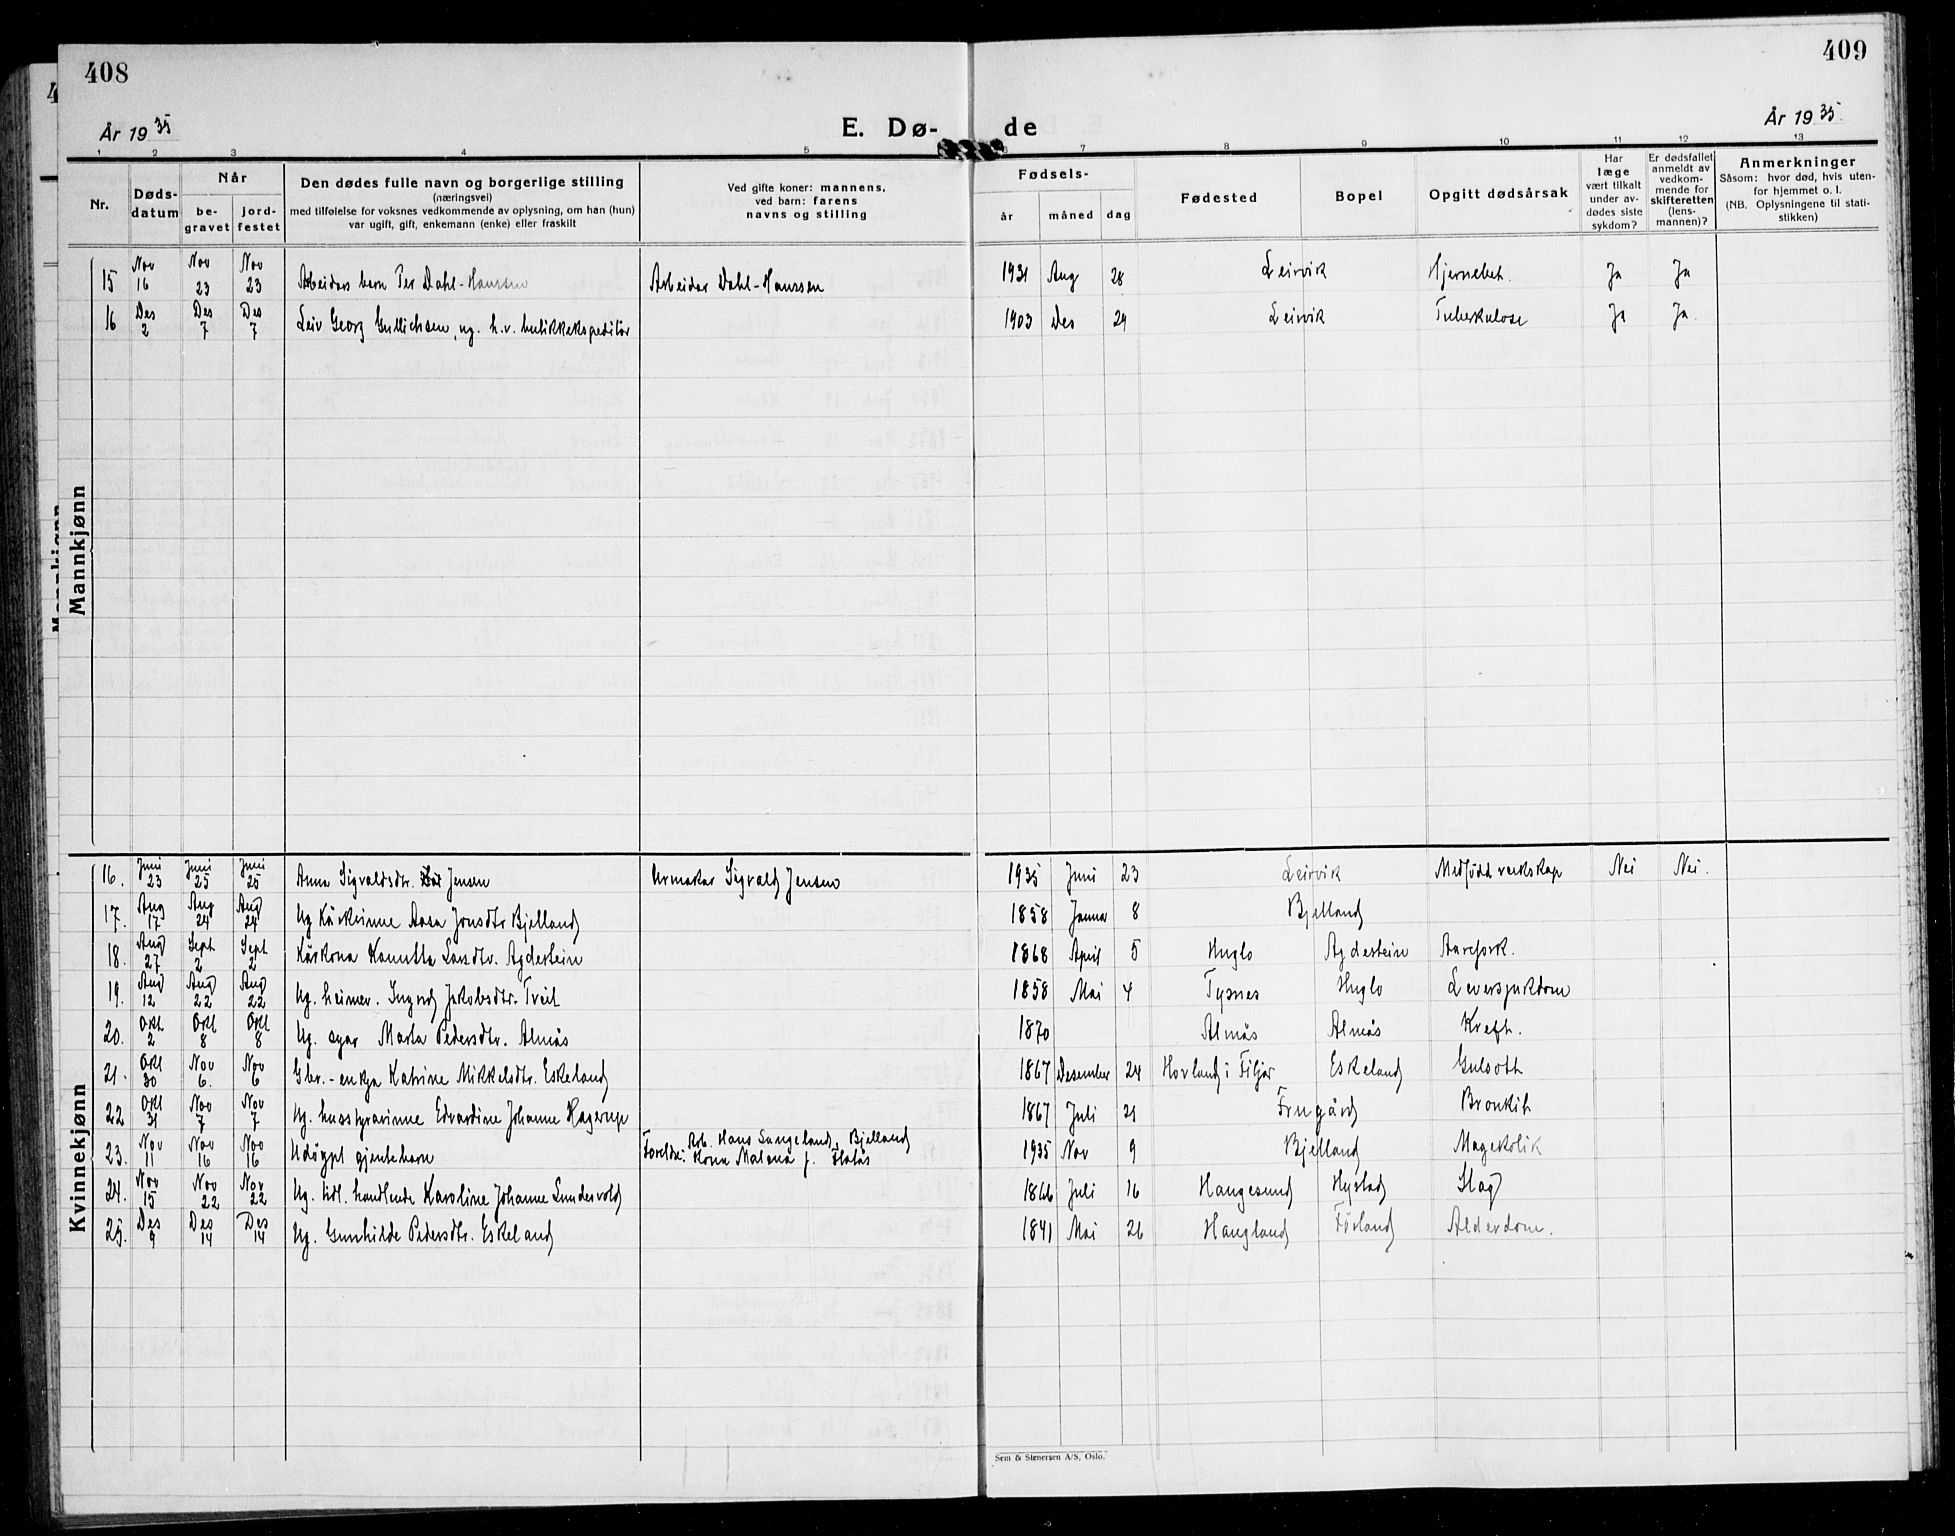 408
409
År 1935
E. Dø-
de
År 1935.
1 2 3 4 5 6 7 8 9 10 11 12 13
Nr.
Døds-
datum
Når
be-
gravet
jord-
festet
Den dødes fulle navn og borgerlige stilling
(næringsvei)
med tilføielse for voksnes vedkommende av oplysning, om han (hun)
var ugift, gift, enkemann (enke) eller fraskilt
Ved gifte koner: mannens,
ved barn: farens
navns og stilling
Fødsels-
år måned dag
Fødested
Bopel
Opgitt dødsårsak
Har
læge
vært tilkalt
under av-
dødes siste
sykdom?
Er dødsfallet
anmeldt av
vedkom-
mende for
skifteretten
(lens-
mannen)?
Anmerkninger
Såsom: hvor død, hvis uten-
for hjemmet o. l.
(NB. Oplysningene til stati-
stikken)
Mannkjønn
15 Nov 16 Nov 23 Nov 23 Arbeidars barn Per Dahl-Hanssen Arbeidar Dahl-Hanssen 1931 Aug 28 Leirvik Hjernebet. Ja Ja
16 Des 2 Des 7 Des 7 Leiv Georg Gullichsen, ug. h.v. butikkekspeditör 1903 Des 29 Leirvik Tuberkulose Ja Ja.
Kvinnekjønn
16. Juni 23 Juni 25 Juni 25 Anna Sigvaldsdtr. Jensen Urmakar Sigvald Jensen 1935 Juni 23 Leirvik Medfödd veikskap Nei Nei.
17. Aug 17 Aug 24 Aug 24 Ug Kårkvinne Aasa Jonsdtr Bjelland 1858 Januar 8 Bjelland
18. Aug 27 Sept 2 Sept 2 Kårkona Kanutta Larsdtr. Agdestein 1868 April 5 Huglo Agdestein Aarefork.
19. Aug 12 Aug 22 Aug 22 Ug. heimev. Ingrid Jakobsdtr. Tveit 1858 Mai 4 Tysnes Huglo Leversjukdom
20. Okt 2 Okt 8 Okt 8 Ug. syar Marta Pedersdtr. Almås 1870 Almås Almås Kreft.
21. Okt 30 Nov 6. Nov 6 Gbr.-enkja Katrine Mikkelsdtr. Eskeland 1867 Desember 24 Hovland i Fitjar Eskeland Gulsott
22 Okt 31 Nov 7 Nov 7 Ug. husstyrarinne Edvardine Johanne Hagerup 1867 Juli 21 Frugård Bronkit
23. Nov 11 Nov 16 Nov 16 Udöypt gjentebarn Foreldre: Arb. Hans Langeland, Bjelland
Kona Malena f. Flatås 1935 Nov 9 Bjelland Magekolik
24. Nov 15 Nov 22 Nov 22 Ug. tidl. handlende Karoline Johanne Sundsvold 1866 Juli 16 Haugesund Hystad Slag
25. Des 9 Des 14 Des 14 Ug. Gunhilde Pedersdtr. Eskeland 1841 Mai 26 Haugland Förland Alderdom.
Sem & Stenersen A/S, Oslo.